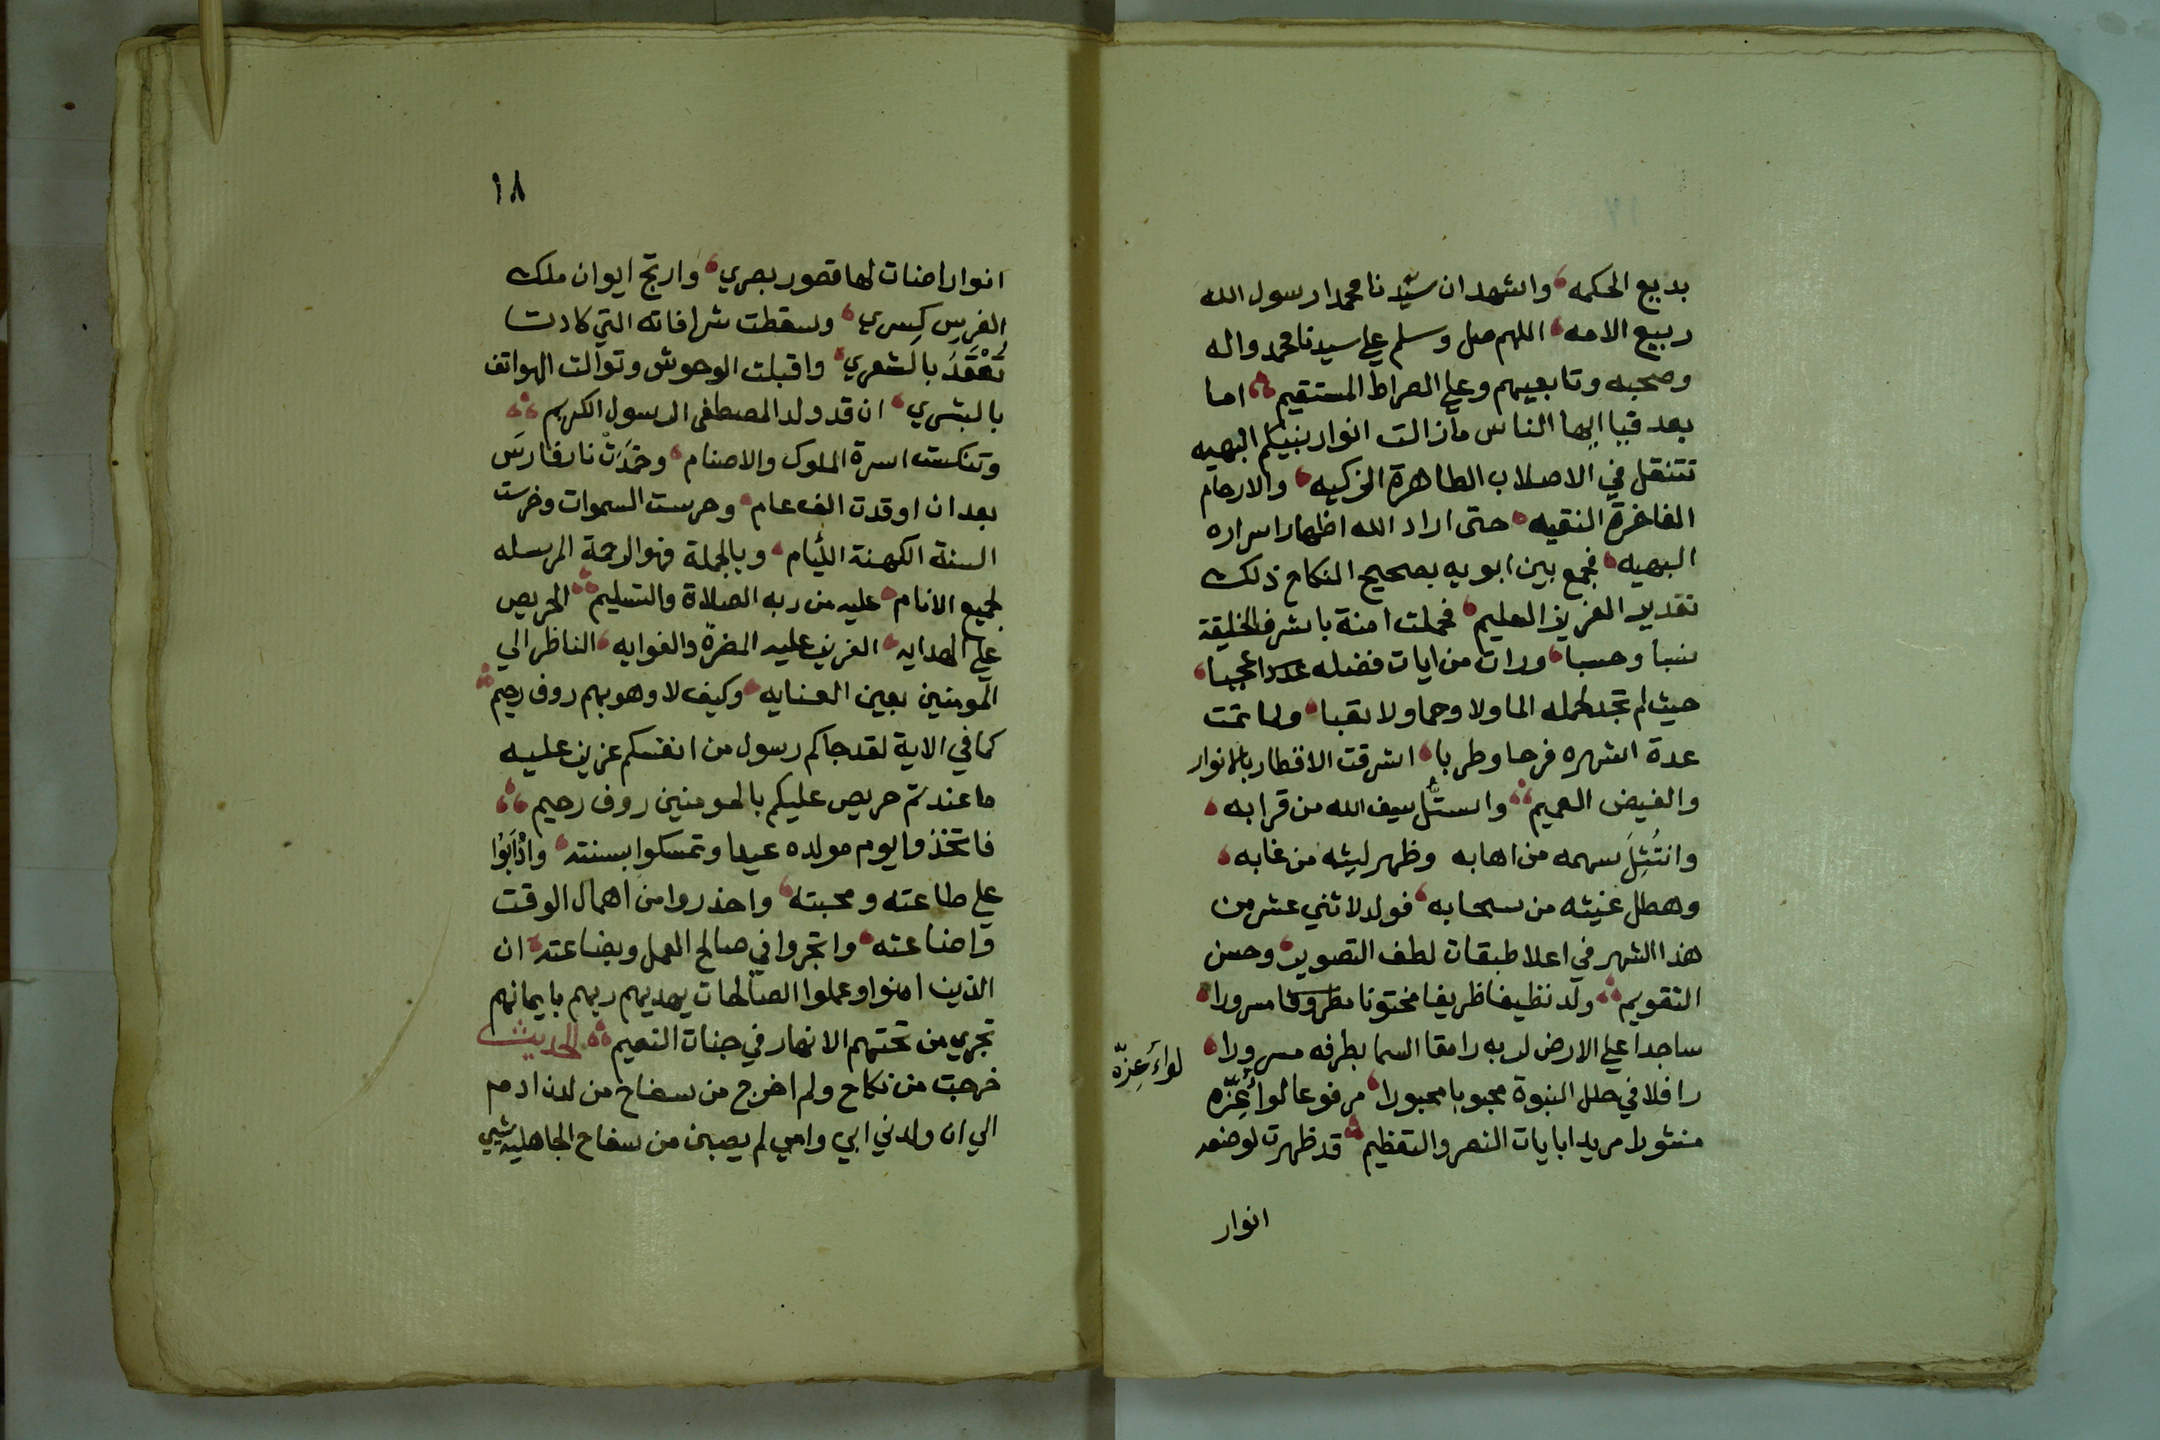 بديع الحكمه واشهد ان سيدنا محمدا رسول الله
ربيع الامه اللهم صل وسلم علي سيدنا محمد واله
وصحبه وتابعيهم وعلي الصراط المستقيم اما
بعد فيا ايها الناس مازالت انوار نبيكم البهيه
تتنقل في الاصلاب الطاهرة الزكيه والارحام
الفاخرة النقيه حتى اراد الله اظهار اسراره
البهيه فجمع بين ابويه بصحيح النكاح ذلك
تقدير العزيز العليم فحملت امنة باشرف الخليقة
نسبا وحسبا ورات من ايات فضله عددا عجبا
حيث لم تجد لحمله الما ولا وحما ولا تعبا ولما تمت
عدة اشهره فرحا وطربا اشرقت الاقطار بالانوار
والفيض العميم واستل سيف الله من قرابه
وانتُثِلَ سهمه من اهابه وظهر ليثه من غابه
وهطل غيثه من سحابه فولد لاثني عشر من
هذا الشهر في اعلا طبقات لطف التصوير وحسن
التقويم ولد نظيفا ظريفا مختونا مطروفا مسرورا
ساجدا علي الارض لربه رامقا السما بطرفه مسرورا
رافلا في حلل النبوة محبوبا محبورا مرفوعا لواء عِزّه
لواءَ عِزّه
منشورا مريدا بايات النصر والتعظيم قد ظهرت لوضعه
انوار
١٨
انوار اضات لها قصور بصري وارتج ايوان ملك
الفرس كِسري وسقطت شرافاته التي كادت
تُعْقَدَ بالشعري واقبلت الوحوش وتوالت الهواتف
بالبشري ان قد ولد المصطفى الرسول الكريم
وتنكست اسرة الملوك والاصنام وخمَدَتْ نار فارسَ
بعد ان اوقدت الف عام وحرست السموات وخرست
السنة الكهنة اللئام وبالجملة فهو الرحمة المرسله
لجميع الانام عليه من ربه الصلاة والتسليم الحريص
علي الهدايه العزيز عليه المضرة والغوايه الناظر الي
المومنين بعين العنايه وكيف لا وهو بهم روف رحيم
كما في الاية لقد جاكم رسول من انفسكم عزيز عليه
ما عندتم حريص عليكم بالمومنين روف رحيم
فاتخذوا يوم مولده عيدا وتمسكوا بسنته وادْأَبُوا
علي طاعته ومحبته واحذروا من اهمال الوقت
واضاعته واتجروا في صالح العمل وبضاعته ان
الذين امنوا وعملوا الصالحات يهديهم ربهم بايمانهم
تجري من تحتهم الانهار في جنات النعيم الحديث
خرجت من نكاح ولم اخرج من سفاح من لدن ادم
الي ان ولدني ابي وامي لم يصبني من سفاح الجاهلية شي